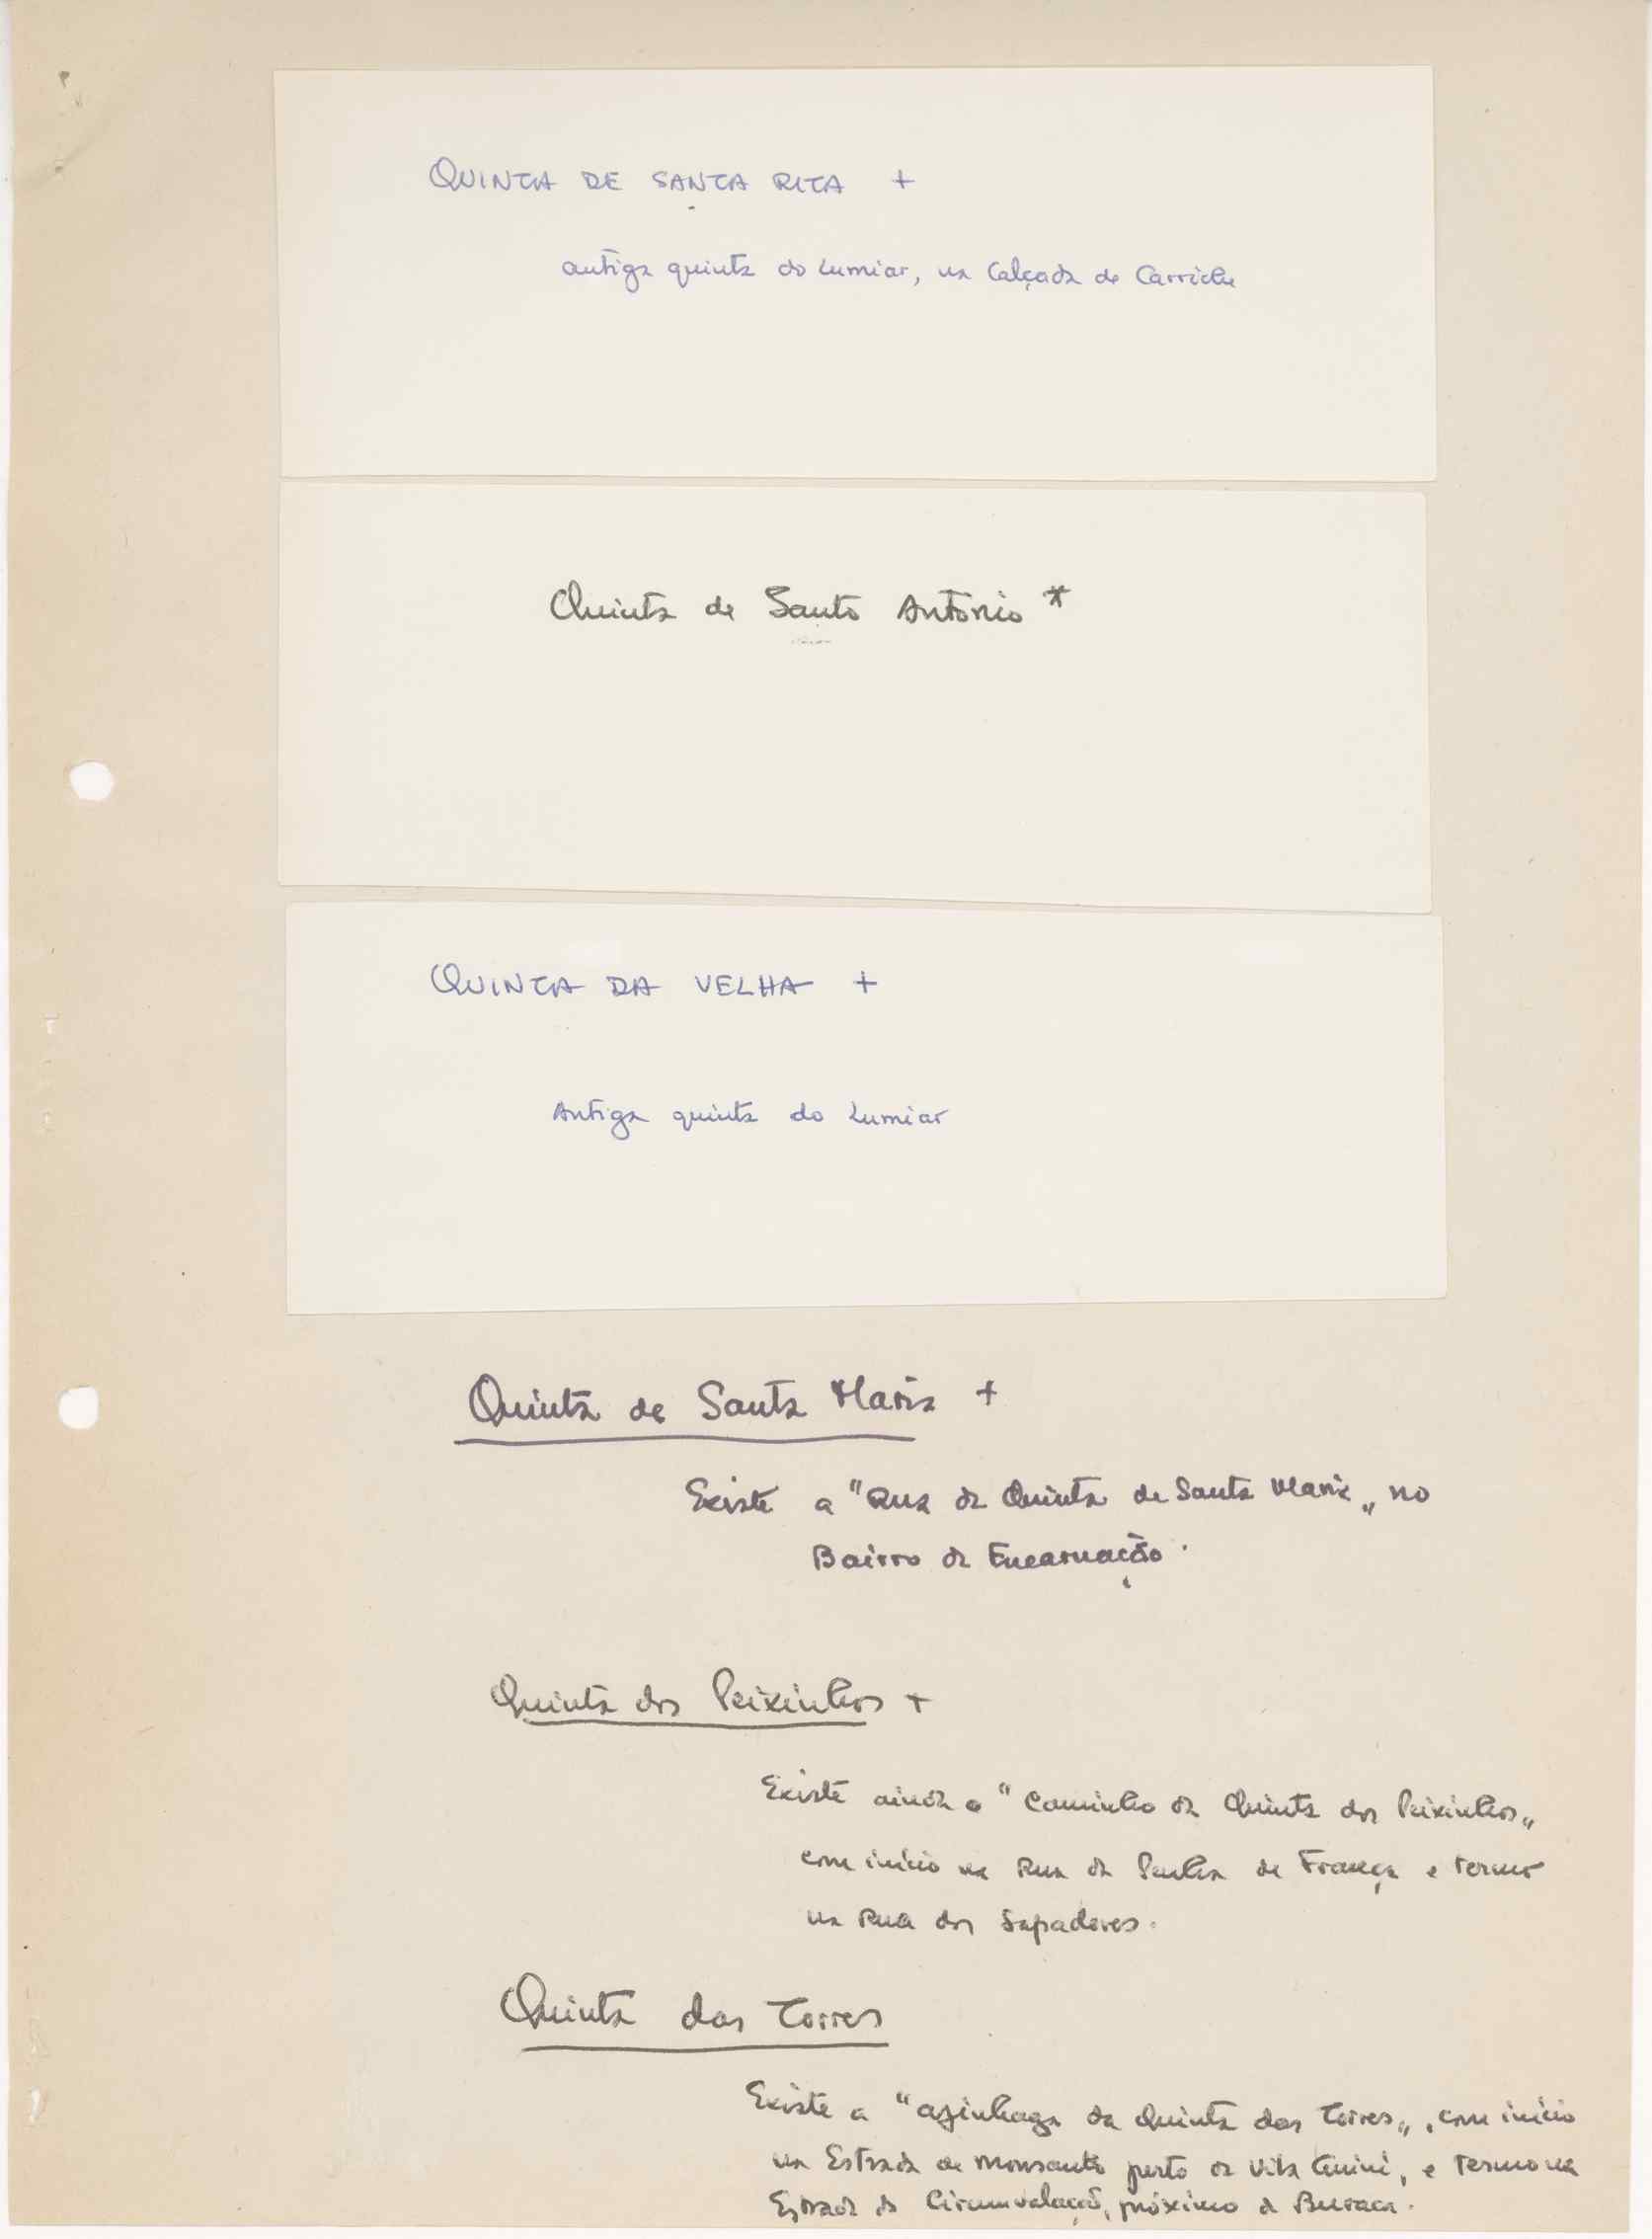 QUINTA DE SANTA RITA +
antiga quinta do Lumiar, na Calçada de Carriche
Quinta de Santo António *
QUINTA DA VELHA +
Antiga quinta do Lumiar
Quinta de Santa Maria +
Existe a "Rua da Quinta de Santa Maria„ no
Bairro da Encarnação.
Quinta dos Peixinhos +
Existe ainda o "Caminho da Quinta dos Peixinhos„
com início na Rua da Penha de França e termo
na Rua dos Sapadores.
Quinta das Torres
Existe a "azinhaga da Quinta das Torres„, com início
na Estrada de Monsanto perto da Vila, e termo na
Estrada da Circunvalação, próximo da Buraca.